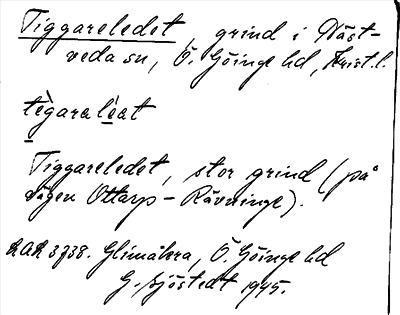 Tiggareledet, grind i Näst-
veda sn, Ö. Göinge hd, Krist. l.
tègaraléat
Tiggareledet, stor grind (på
vägen Ottarp - Rävninge).
LAL 3738. Glimåkra, Ö. Göinge hd
G. Sjöstedt 1945.